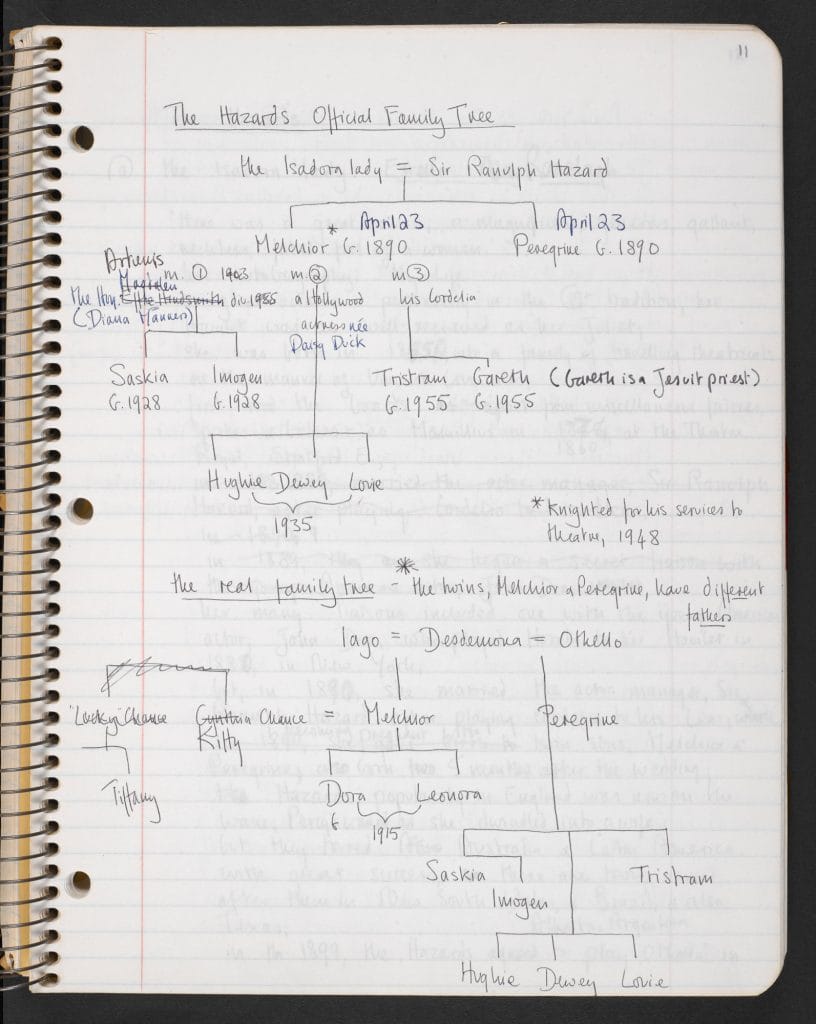 11
The Hazards Official Family Tree
the Isadora lady = Sir Ranulph Hazard
April 23 April 23
* Melchior G. 1890 Peregrine G. 1890
Artemis
Magdalen m. ① 1903 m. ② m ③
the Hon. div. 1935 a Hollywood his Cordelia
(Diana Manners) actress née
Daisy Duck
Saskia Imogen Tristram Gareth (Gareth is a Jesuit priest)
G. 1928 G. 1928 G. 1955 G. 1955
Hughie Dewey Lovie
1935
* Knighted for his services to
theatre, 1948
*
the real family tree - the twins, Melchior & Peregrine, have different
fathers
Iago = Desdemona = Othello
'Lucky' Chance Cynthia Chance = Melchior Peregrine
Kitty
Tiffany Dora Leonora
G. 1915
Saskia Tristram
Imogen
Hughie Dewey Lovie